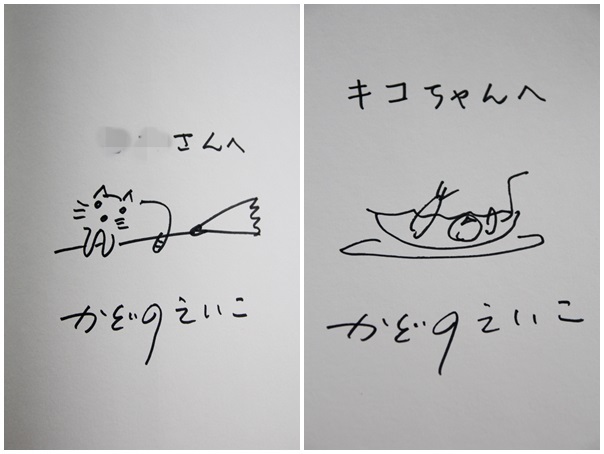 さんへ
かどのえいこ
キコちゃんへ
かどのえいこ